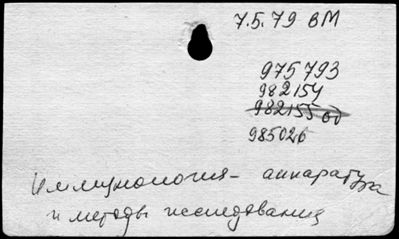 7.5.79 ВМ
975793
982154
982155 од
985026
Иммунология - аппаратура
и методы исследования